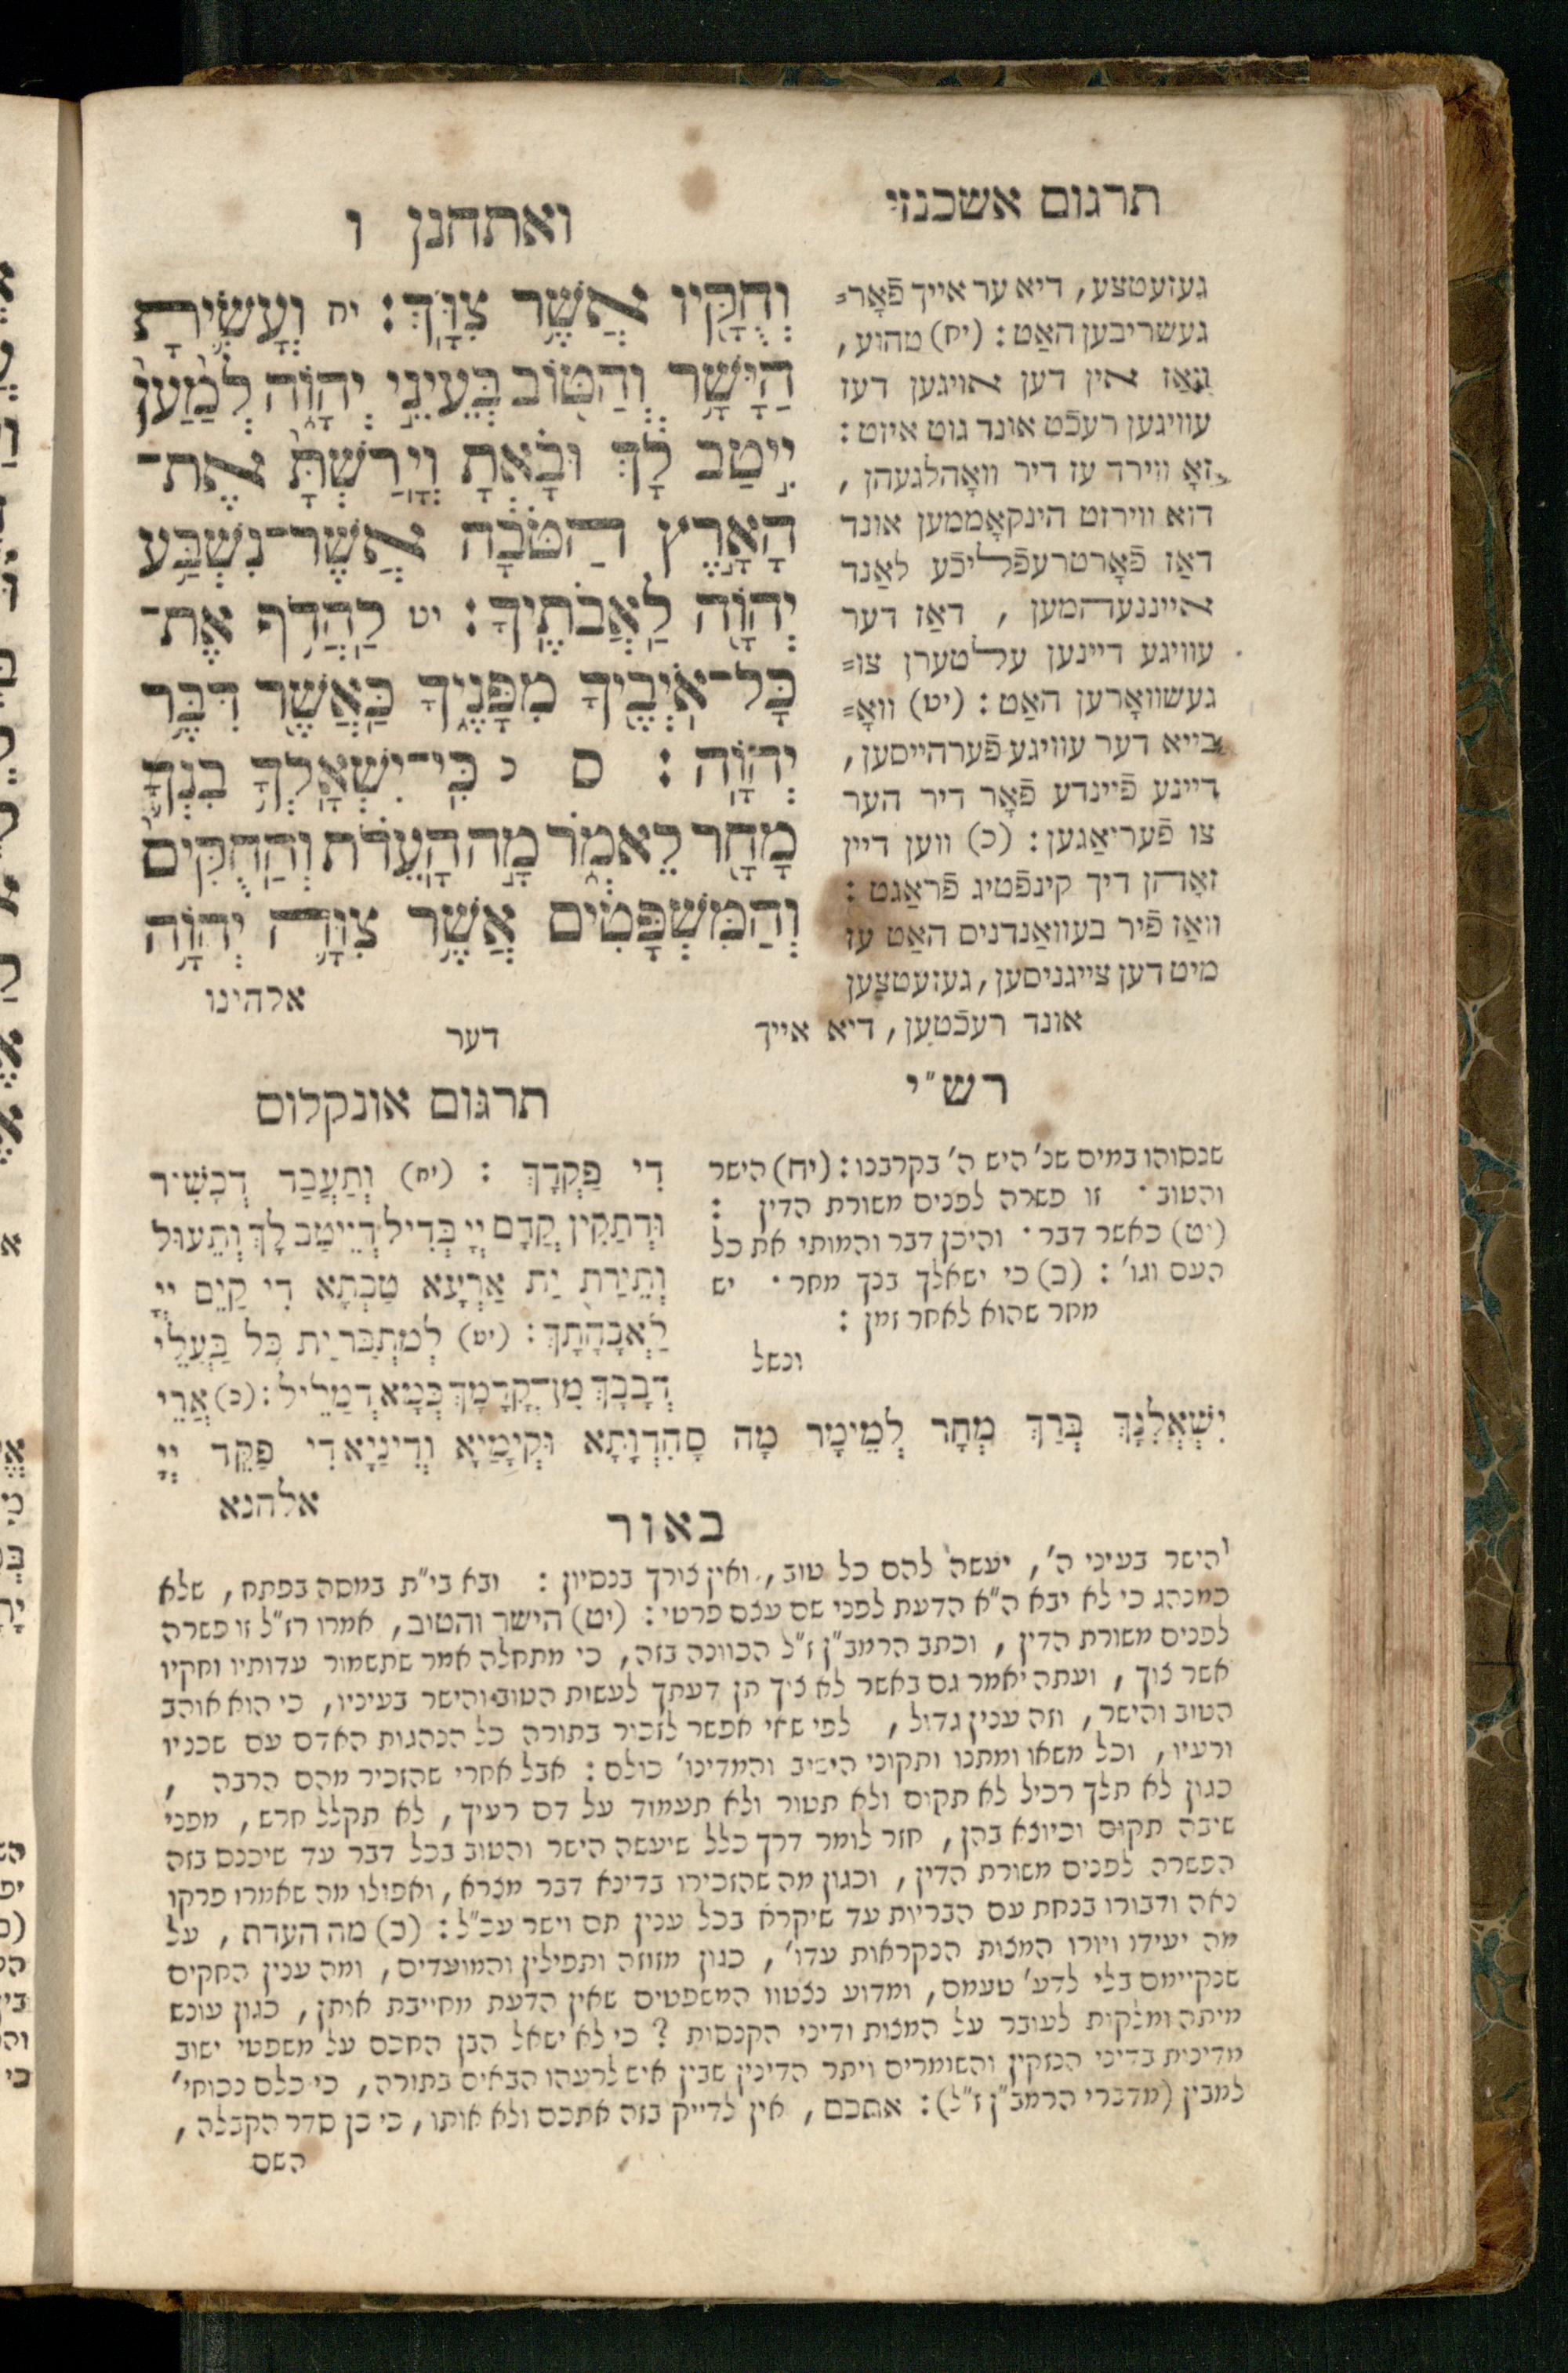 תרגום אשכנזי
ואתחנן ו
וְחֻקָּיו אֲשֶׁר צִוָּךְ׃ יח וְעָשִׂיתָ
הַיָּשָׁר וְהַטּוֹב בְּעֵינֵי יְהוָה לְמַעַן
יִיטַב לָךְ וּבָאתָ וְיָרַשְׁתָּ אֶת־
הָאָרֶץ הַטֹּבָה אֲשֶׁר־נִשְׁבַּע
יְהוָה לַאֲבֹתֶיךָ׃ יט לַהֲדֹף אֶת־
כָּל־אֹיְבֶיךָ מִפָּנֶיךָ כַּאֲשֶׁר דִּבֶּר
יְהוָה׃ ס כ כִּי־יִשְׁאָלְךָ בִנְךָ
מָחָר לֵאמֹר מָה הָעֵדֹת וְהַחֻקִּים
וְהַמִּשְׁפָּטִים אֲשֶׁר צִוָּה יְהוָה
אלהינו
געזעטצע, דיא ער אייך פֿאָר=
געשריבען האַט: (יח) טהוע,
וואַז אין דען אויגען דעז
עוויגען רעכֿט אונד גוט איזט:
זאָ ווירד עז דיר וואָהלגעהן,
דוא ווירזט הינקאָממען אונד
דאַז פֿאָרטרעפֿליכֿע לאַנד
איינעהמען, דאַז דער
עוויגע דיינען עלטערן צו=
געשוואָרען האַט: (יט) וואָ=
בייא דער עוויגע פֿערהייסען,
דיינע פֿיינדע פֿאָר דיר הער
צו פֿעריאַגען: (כ) ווען דיין
זאָהן דיך קינפֿטיג פֿראַגט:
וואַז פֿיר בעוואַנדניס האַט עז
מיט דען צייגניסען, געזעטצען
אונד רעכֿטען, דיא אייך
דער
רש"י
שנסוהו במים שנ' היש ה' בקרבנו: (יח) הישר
והטוב · זו פשרה לפנים משורת הדין:
(יט) כאשר דבר · והיכן דבר והמותי את כל
העם וגו': (כ) כי ישאלך בנך מחר · יש
מחר שהוא לאחר זמן:
וכשל
תרגום אונקלוס
דִי פַקְדָךְ: (יח) וְתַעֲבֵד דְכָשַׁיר
וּדְתַקִין קֳדָם יְיָ בְּדִיל דְיֵיטַב לָךְ וְתֵעוֹל
וְתֵירַת יַת אַרְעָא טַבְתָא דִי קַיֵם יְיָ
לַאֲבָהָתָךְ: (יט) לְמִתְבַּר יַת כָּל בַּעֲלֵי
דְבָבָךְ מִן־קֳדָמָךְ כְּמָא דְמַלֵיל: (כ) אֲרֵי
יִשְׁאֲלִנָךְ בְּרָךְ מְחָר לְמֵימָר מָה סָהִדְוָתָא וּקְיָמַיָא וְדִינַיָא דִי פַקֵד יְיָ
אלהנא
באור
והישר בעיני ה', יעשה להם כל טוב, ואין צורך בנסיון: ובא בי"ת במסה בפתח, שלא
כמנהג כי לא יבא ה"א הדעת לפני שם עצם פרטי: (יט) הישר והטוב, אמרו רז"ל זו פשרה
לפנים משורת הדין, וכתב הרמב"ן ז"ל הכוונה בזה, כי מתחלה אמר שתשמור עדותיו וחקיו
אשר צוך, ועתה יאמר גם באשר לא ציך תן דעתך לעשות הטוב והישר בעיניו, כי הוא אוהב
הטוב והישר, וזה ענין גדול, לפי שאי אפשר לזכור בתורה כל הנהגות האדם עם שכניו
ורעיו, וכל משאו ומתנו ותקוני הישיב והמדינו' כולם: אבל אחרי שהזכיר מהם הרבה,
כגון לא תלך רכיל לא תקום ולא תטור ולא תעמוד על דם רעיך, לא תקלל חרש, מפני
שיבה תקום וכיוצא בהן, חזר לומר דרך כלל שיעשה הישר והטוב בכל דבר עד שיכנס בזה
הפשרה לפנים משורת הדין, וכגון מה שהזכירו בדינא דבר מצרא, ואפולו מה שאמרו פרקו
נאה ודבורו בנחת עם הבריות עד שיקרא בכל ענין תם וישר עכ"ל: (כ) מה העדת, על
מה יעידו ויורו המצות הנקראות עדו', כגון מזוזה ותפילין והמועדים, ומה ענין החקים
שנקיימם בלי לדע' טעמם, ומדוע נצטוו המשפטים שאין הדעת מחייבת אותן, כגון עונש
מיתה ומלקות לעובר על המצות ודיני הקנסות? כי לא ישאל הבן החכם על משפטי ישוב
מדינית בדיני הנזקין והשומרים ויתר הדינין שבין איש לרעהו הבאים בתורה, כי כלם נכוחי'
למבין (מדברי הרמב"ן ז"ל): אתכם, אין לדייק בזה אתכם ולא אותו, כי כן סדר הקבלה,
השם